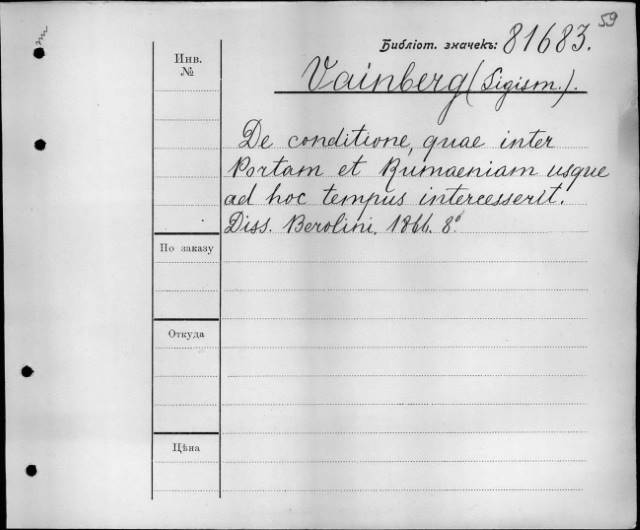 59
Библіот. значекъ: 81683.
Инв.
№
Vainberg (Sigism.).
De conditione, quae inter
Portam et Rumaeniam usque
ad hoc tempus intercesserit.
Diss. Berolini. 1866. 8°
По заказу
Откуда
Цѣна